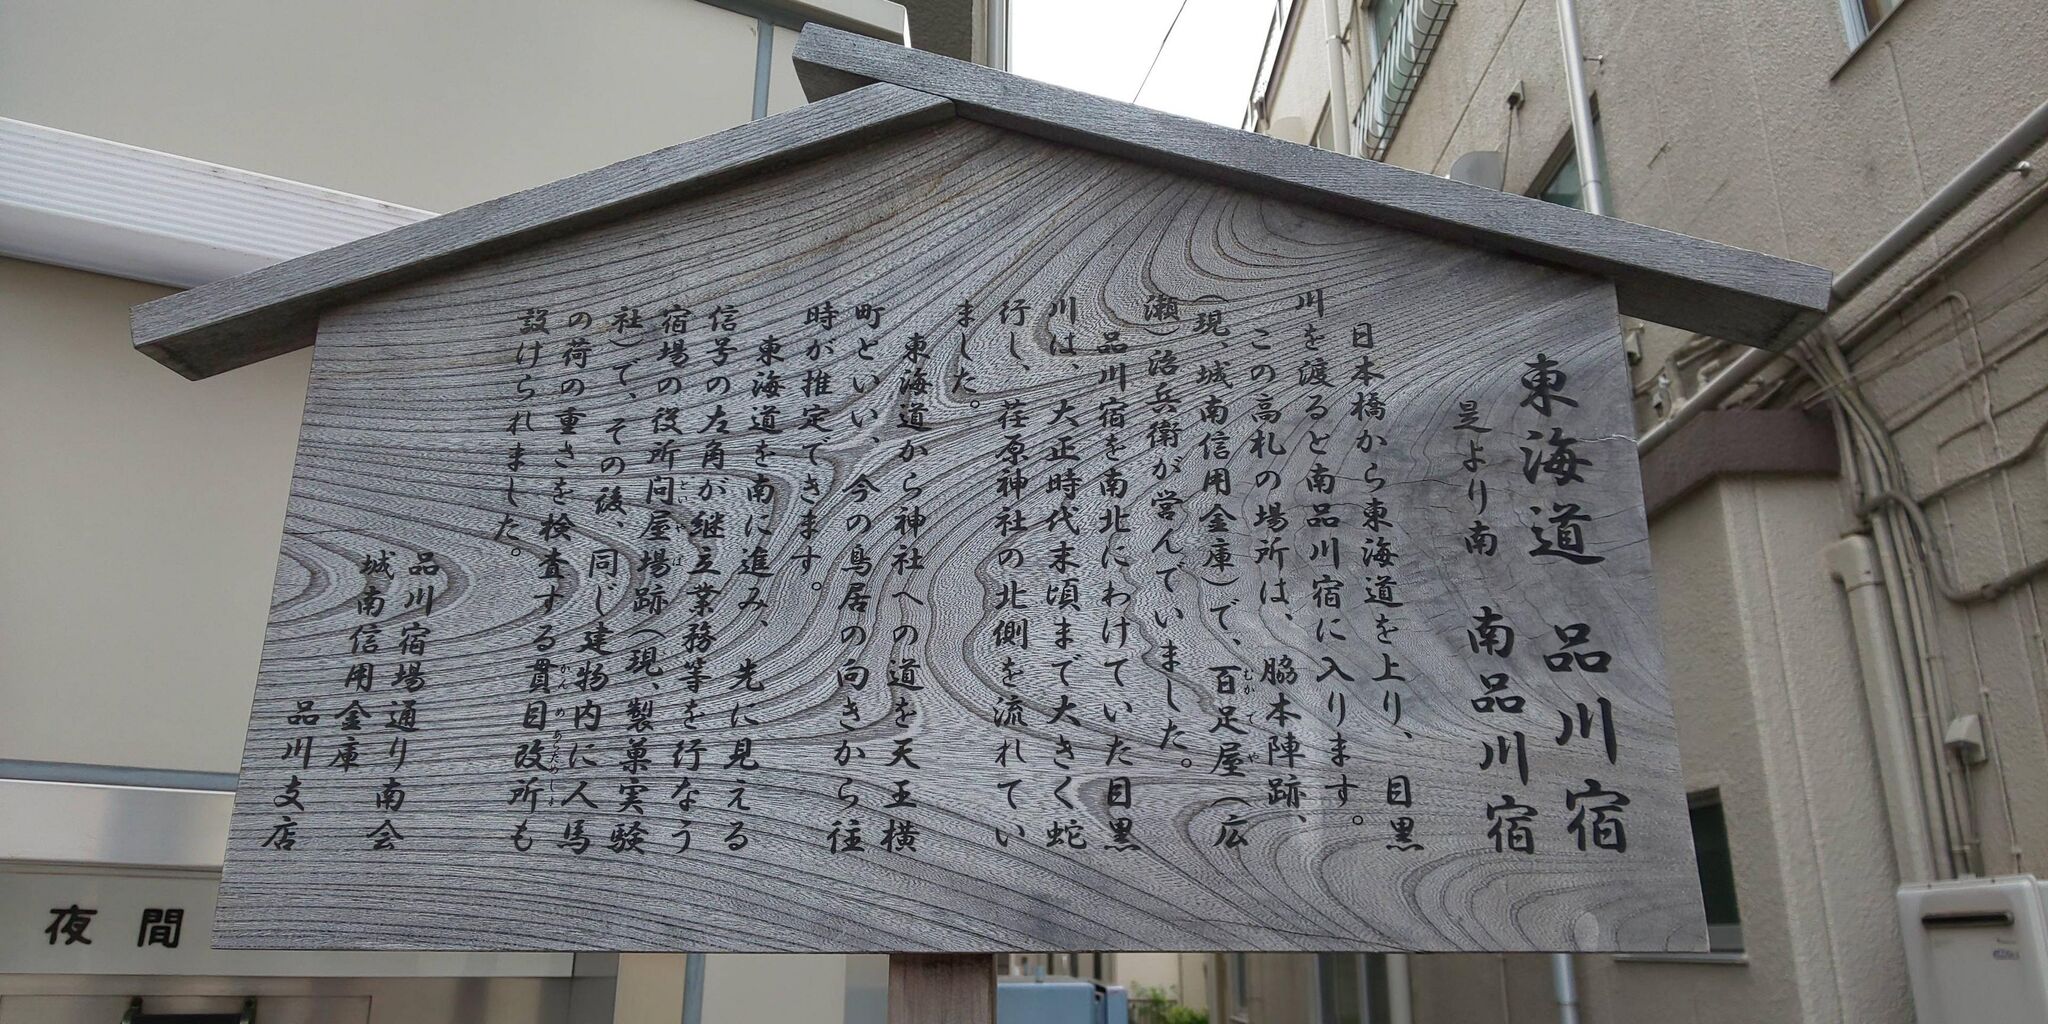 東海道 品川宿
是より南 南品川宿
日本橋から東海道を上り、目黒
川を渡ると南品川宿に入ります。
この高札の場所は、脇本陣跡、
(現、城南信用金庫)で、百足屋(広
むかでや
瀬)治兵衛が営んでいました。
品川宿を南北にわけていた目黒
川は、大正時代末頃まで大きく蛇
行し、荏原神社の北側を流れてい
ました。
東海道から神社への道を天王横
町といい、今の鳥居の向きから往
時が推定できます。
東海道を南に進み、先に見える
信号の左角が継立業務等を行なう
宿場の役所問屋場跡(現、製菓実験
といやば
社)で、その後、同じ建物内に人馬
の荷の重さを検査する貫目改所も
かんめあらためしょ
設けられました。
品川宿場通り南会
城南信用金庫
品川支店
夜間